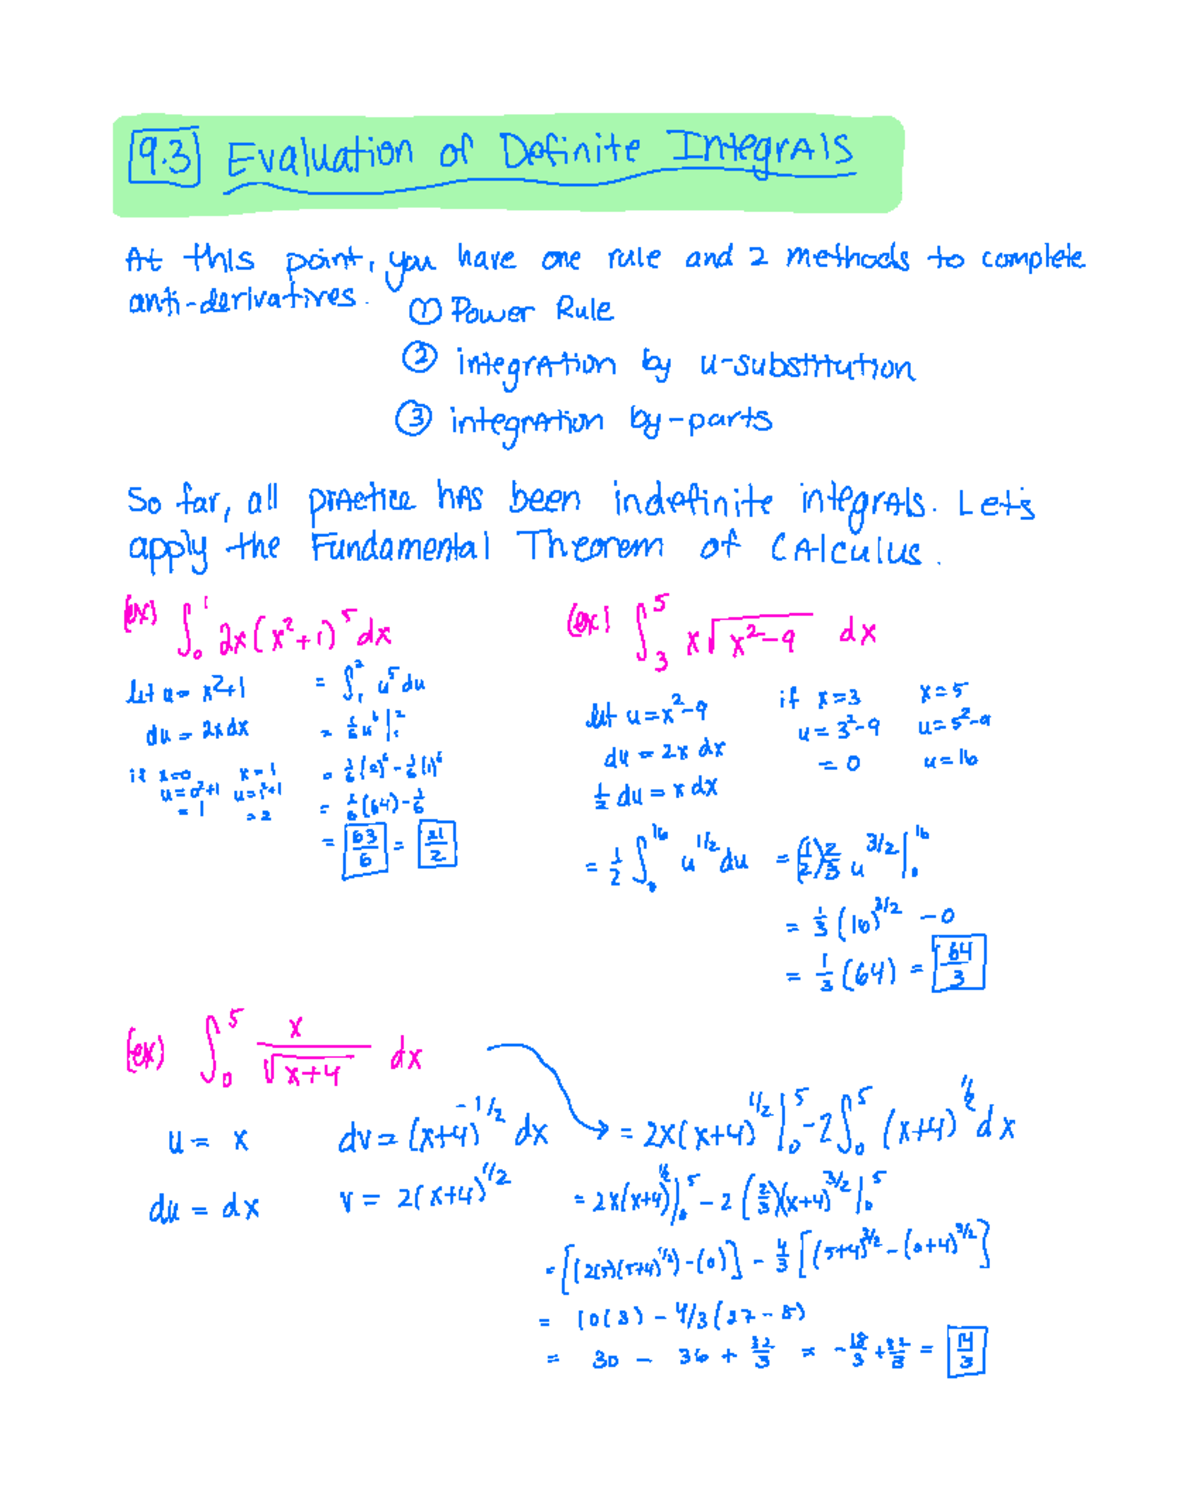 9.3 Evaluation of Definite Integrals
At this point, you have one rule and 2 methods to complete
anti-derivatives.
① Power Rule
② integration by u-substitution
③ integration by-parts
So far, all practice has been indefinite integrals. Let's
apply the Fundamental Theorem of Calculus.
(ex) ∫₀¹ 2x(x²+1)⁵dx
let u = x²+1
du = 2xdx
if x=0 x=1
u=0²+1 u=1²+1
= 1 =2
= ∫₁² u⁵du
= 1/6 u⁶|₁²
= 1/6(2)⁶ - 1/6(1)⁶
= 1/6(64) - 1/6
= 63/6 = 21/2
(ex) ∫₃⁵ x√(x²-9) dx
let u=x²-9
du = 2x dx
1/2 du = x dx
if x=3 x=5
u=3²-9 u=5²-9
= 0 u=16
= 1/2 ∫₀¹⁶ u^(1/2) du = (1/2)2/3 u^(3/2)|₀¹⁶
= 1/3(16)^(3/2) - 0
= 1/3(64) = 64/3
(ex) ∫₀⁵ x/√(x+4) dx
u = x dv = (x+4)^(-1/2) dx
du = dx v = 2(x+4)^(1/2)
= 2x(x+4)^(1/2)|₀⁵ - 2∫₀⁵ (x+4)^(1/2) dx
= 2x(x+4)^(1/2)|₀⁵ - 2(2/3)(x+4)^(3/2)|₀⁵
= [(2(5)(5+4)^(1/2)) - (0)] - 4/3[(5+4)^(3/2) - (0+4)^(3/2)]
= 10(3) - 4/3(27-8)
= 30 - 36 + 32/3 = -18/3 + 32/3 = 14/3